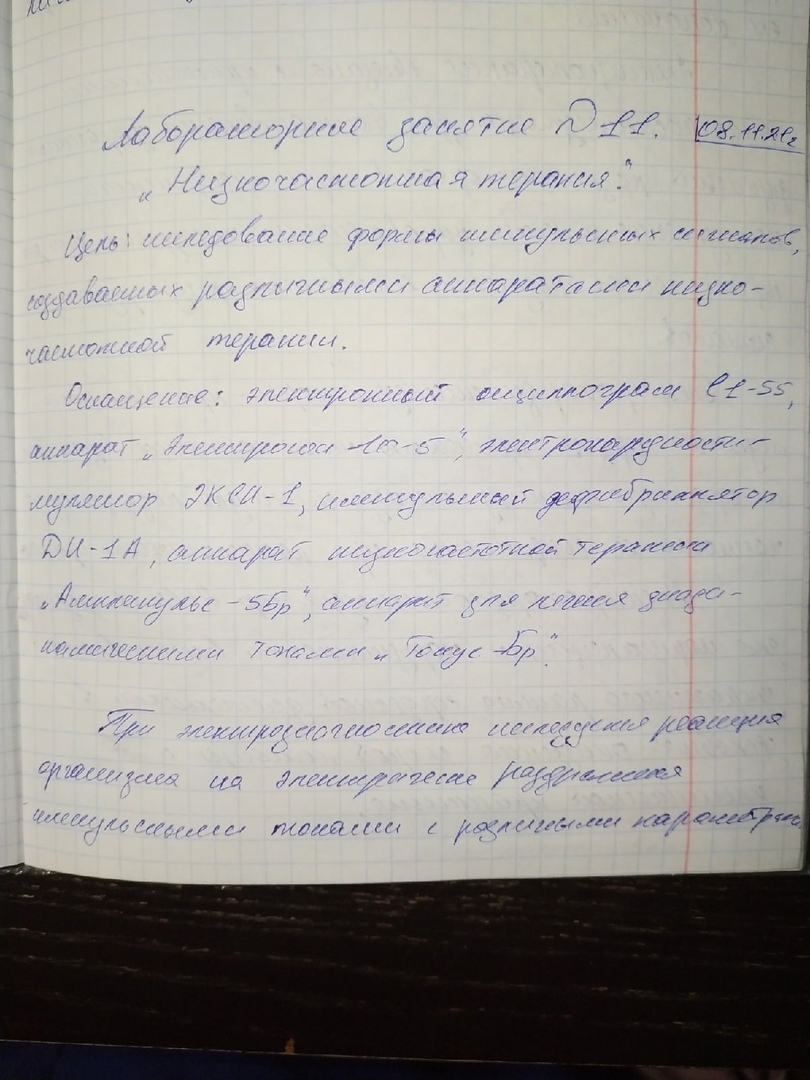 Лабораторное занятие №11. 08.11.21г
„Низкочастотная терапия".
Цель: исследование формы импульсных сигналов,
создаваемых различными аппаратами низко-
частотной терапии.
Оснащение: электронный осциллограф С1-55,
аппарат „Электросон 10-5", электрокардиости-
мулятор ЭКСИ-1, импульсный дефибриллятор
DИ-1А, аппарат низкочастотной терапии
„Амплипульс-5Бр", аппарат для лечения диода-
намическими токами „Тонус-Бр".
При электродиагностике исследуется реакция
организма на электрические раздражения
импульсными токами с различными параметрами